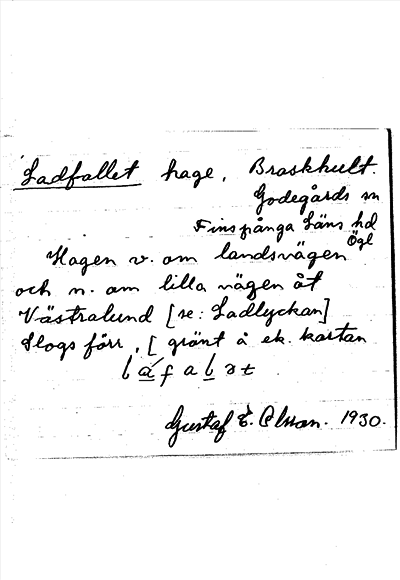 Ladfallet hage, Braskhult.
Godegårds sn
Finspånga Läns hd
Ögl
Hagen v. om landsvägen
och n. om lilla vägen åt
Västralund [se: Ladlyckan]
Slogs förr, [grönt å ek. kartan
Gustaf E. Olsson. 1930.